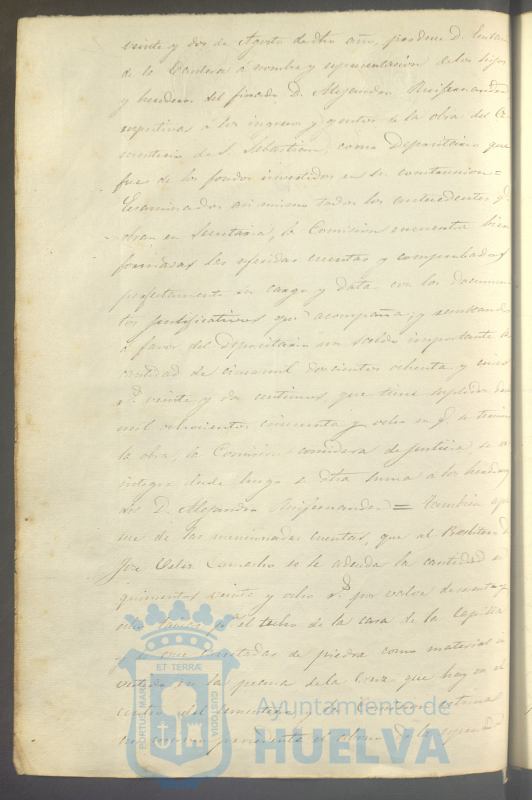 veinte y dos de Agosto de dho año, por dn D.
de la Cantera a nombre y representacion de los hijos
y herederos del finado D. Alejandro
respectivas á los ingresos y gastos de la obra del
de S. Sebastian, como Depositario que
fue de los fondos invertidos en su construccion =
Examinados asi mismo todos los antecedentes q.
obran en Secretaria, la Comision encuentra bien
formadas las referidas cuentas y comprobadas
perfectamente en cargo y data con los documen
tos justificativos que acompaña; y resultando
a favor del Depositario un saldo importante la
cantidad de cincomil doscientos ochenta y cinco
r.s veinte y dos centimos que tiene suplidos desde
mil ochocientos cincuenta y ocho en q. se terminó
la obra, la Comision considera de justicia, se
integre desde luego a dha suma á los herede
de D. Alejandro = Tambien
de las mencionadas cuentas, que al Presbitero D.
José Camacho se le adeuda la cantidad de
quinientos veinte y ocho r.s por valor de
el techo de la casa de la Capilla
de piedra como material
en la peana de la Cruz que hay en el
centro del Cementerio y de
PORTUS MARIS
ET TERRÆ
CUSTODIA
Ayuntamiento de
HUELVA